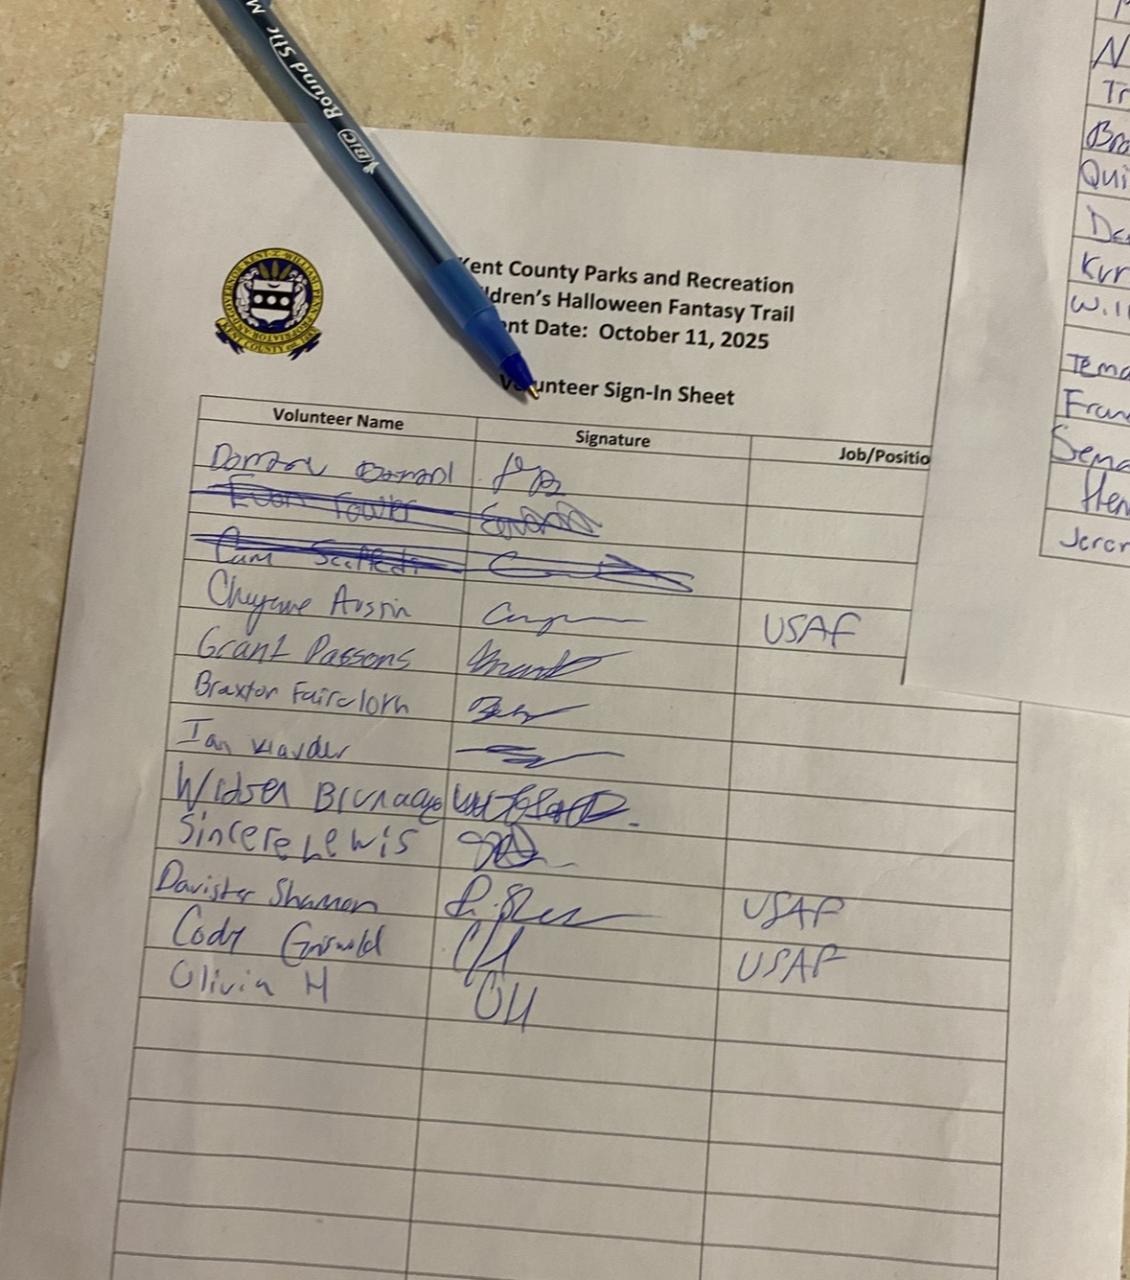 BIC Round Stic M
Kent County Parks and Recreation
ldren's Halloween Fantasy Trail
nt Date: October 11, 2025
Volunteer Sign-In Sheet
Volunteer Name Signature Job/Positio
Evan Fowler
Cam
Cheyenne Austin USAF
Grant Passons
Braxton Faircloth
Ian
Sincere Lewis
Davister Shamon USAF
Cody Griswold CH USAF
Olivia H OH
N
Tr
Bra
Qui
De
Kur
Will
Tema
Fran
Sema
Hen
Jerem